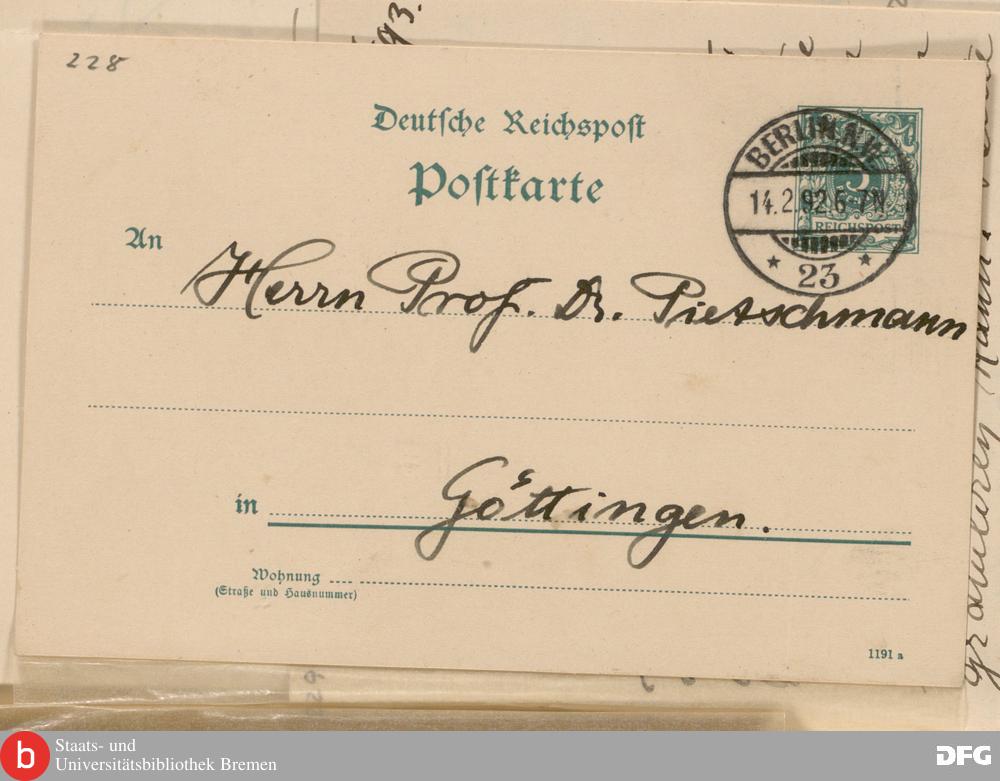 228
Deutsche Reichspost
Postkarte
BERLIN N.W.
14.2.92.6-7N.
* 23 *
5
REICHSPOST
An
Herrn Prof. Dr. Pietschmann
in Göttingen.
Wohnung
(Straße und Hausnummer)
1191 a
93.
gratulieren
b
Staats- und
Universitätsbibliothek Bremen
DFG